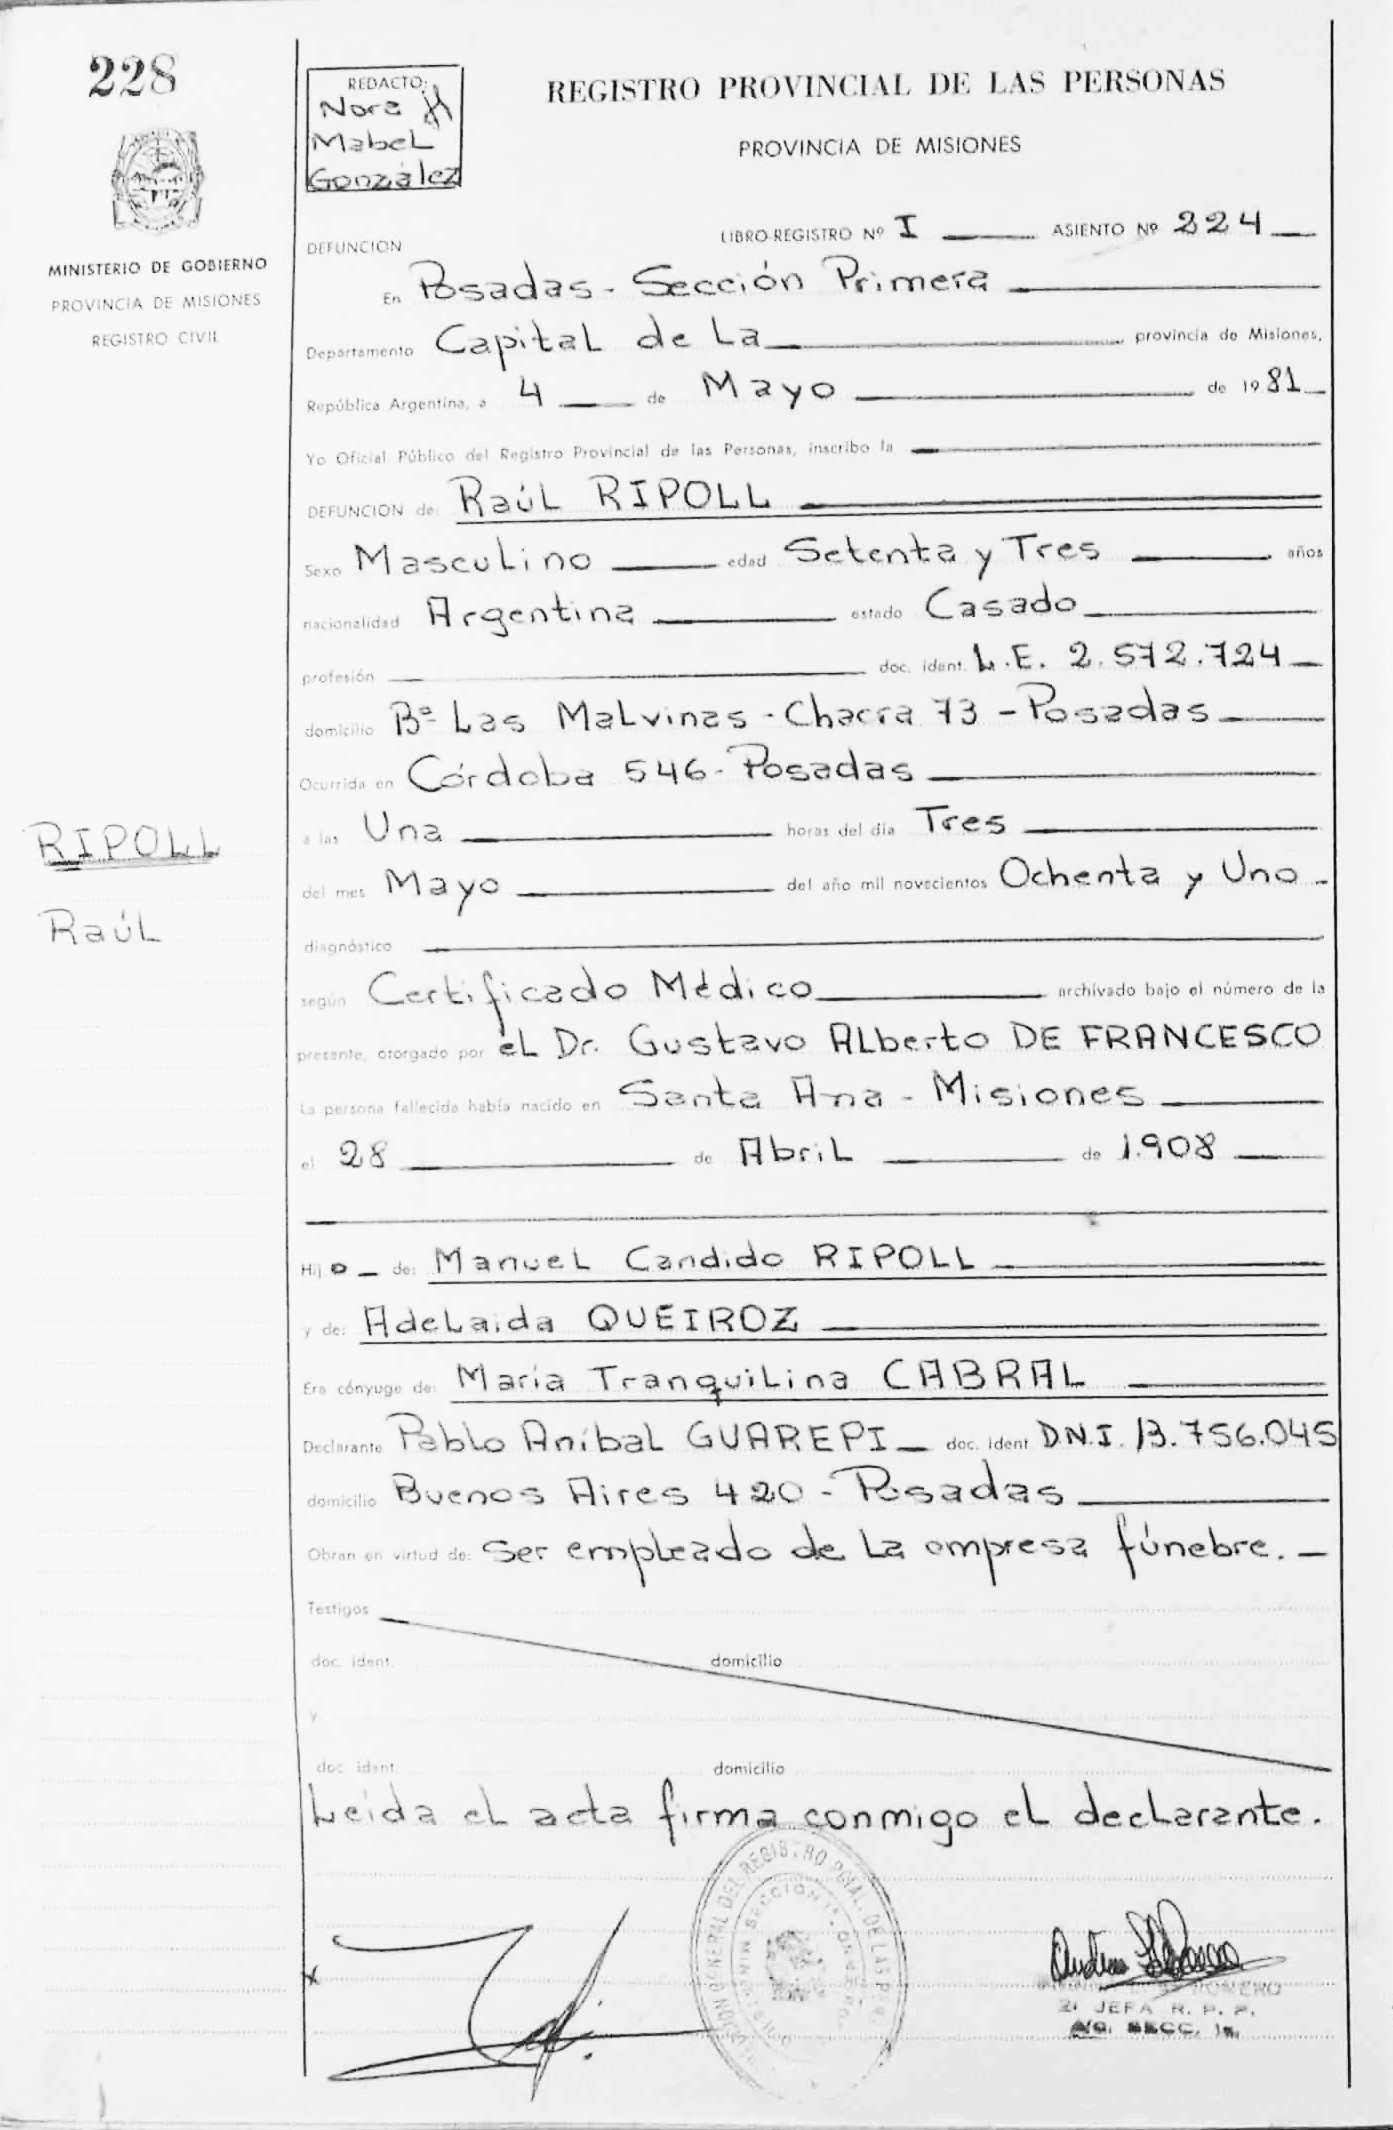 228
MINISTERIO DE GOBIERNO
PROVINCIA DE MISIONES
REGISTRO CIVIL
REDACTO:
Nora
Mabel
González
REGISTRO PROVINCIAL DE LAS PERSONAS
PROVINCIA DE MISIONES
LIBRO-REGISTRO Nº I ASIENTO Nº 224
DEFUNCION
En Posadas - Sección Primera
Departamento Capital de La provincia de Misiones,
República Argentina, a 4 de Mayo de 1981
Yo Oficial Público del Registro Provincial de las Personas, inscribo la
DEFUNCION de: Raúl RIPOLL
Sexo Masculino edad Setenta y Tres años
nacionalidad Argentina estado Casado
profesión doc. ident. L.E. 2.572.724
domicilio Bº Las Malvinas - Chacra 73 - Posadas
Ocurrida en Córdoba 546 - Posadas
a las Una horas del día Tres
del mes Mayo del año mil novecientos Ochenta y Uno
diagnóstico
según Certificado Médico archivado bajo el número de la
presente, otorgado por el Dr. Gustavo Alberto DE FRANCESCO
La persona fallecida había nacido en Santa Ana - Misiones
el 28 de Abril de 1.908
Hijo de: Manuel Candido RIPOLL
y de: Adelaida QUEIROZ
Era cónyuge de: María Tranquilina CABRAL
Declarante Pablo Aníbal GUAREPI doc. ident. D.N.I. 13.756.045
domicilio Buenos Aires 420 - Posadas
Obran en virtud de: Ser empleado de la empresa fúnebre.
Testigos
doc. ident. domicilio
y
doc. ident. domicilio
Leida el acta firma conmigo el declarante.
RIPOLL
Raúl
JEFA R. P. P.
SECC. 1a.